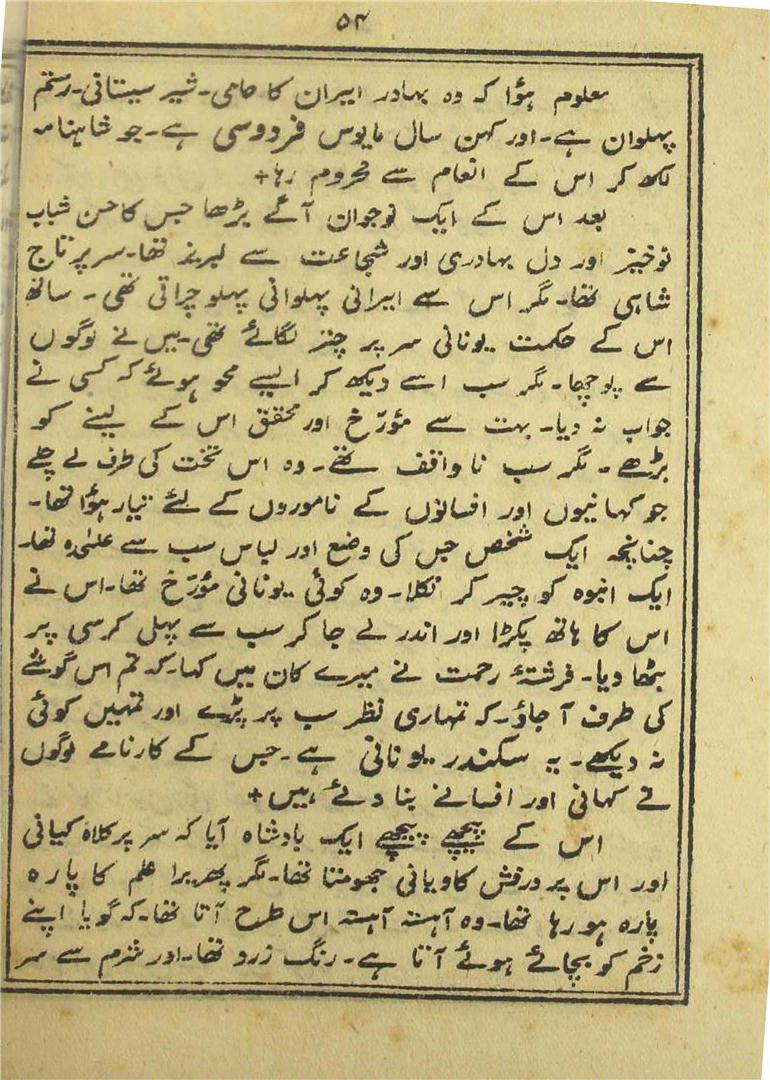 ۵۴
معلوم ہؤا کہ وہ بہادر ایران کا حامی۔ شیر سیستانی۔ رستم
پہلوان ہے۔ اور کہن سال مایوس فردوسی ہے۔ جو شاہنامہ
لکھ کر اس کے انعام سے محروم رہا+
بعد اس کے ایک نوجوان آگے بڑھا جس کا حسن شباب
نوخیز اور دل بہادری اور شجاعت سے لبریز تھا۔ سر پر تاج
شاہی تھا۔ مگر اس سے ایرانی پہلوانی پہلو چراتی تھی۔ ساتھ
اس کے حکمت یونانی سر پر چتر لگائے تھی۔ میں نے لوگوں
سے پوچھا۔ مگر سب اسے دیکھ کر ایسے محو ہوئے کہ کسی نے
جواب نہ دیا۔ بہت سے مؤرّخ اور محقق اس کے لینے کو
بڑھے۔ مگر سب نا واقف تھے۔ وہ اس تخت کی طرف لے چلے
جو کہانیوں اور افسانوں کے ناموروں کے لئے تیار ہؤا تھا۔
چنانچہ ایک شخص جس کی وضع اور لباس سب سے علیٰحدہ تھا۔
ایک انبوہ کو چیر کر نکلا۔ وہ کوئی یونانی مؤرّخ تھا۔ اس نے
اس کا ہاتھ پکڑا اور اندر لے جا کر سب سے پہلی کرسی پر
بٹھا دیا۔ فرشتۂ رحمت نے میرے کان میں کہا۔ کہ تم اس گوشے
کی طرف آ جاؤ۔ کہ تمہاری نظر سب پر پڑے اور تمہیں کوئی
نہ دیکھے۔ یہ سکندر یونانی ہے۔ جس کے کارنامے لوگوں
نے کہانی اور افسانے بنا دئے ہیں+
اس کے پیچھے پیچھے ایک بادشاہ آیا کہ سر پر کلاہ کیانی
اور اس پر درفش کاویانی جھومتا تھا۔ مگر پھریرا علم کا پارہ
پارہ ہو رہا تھا۔ وہ آہستہ آہستہ اس طرح آتا تھا۔ کہ گویا اپنے
زخم کو بچائے ہوئے آتا ہے۔ رنگ زرد تھا۔ اور شرم سے سر